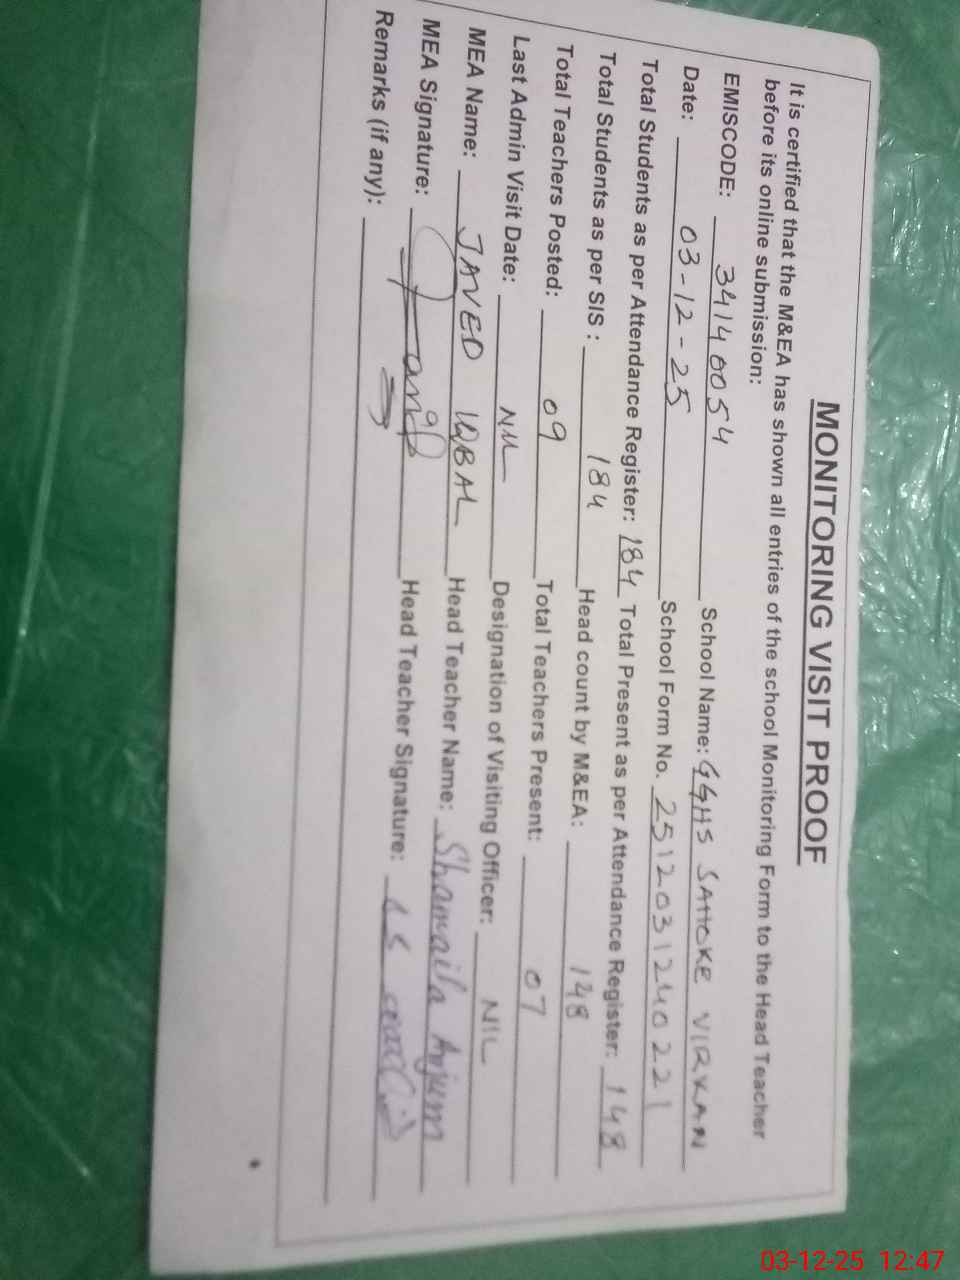 MONITORING VISIT PROOF
It is certified that the M&EA has shown all entries of the school Monitoring Form to the Head Teacher
before its online submission:
EMISCODE: 34140054 School Name: GGHS SATTOKE VIRKAN
Date: 03-12-25 School Form No. 251203124022 1
Total Students as per Attendance Register: 184 Total Present as per Attendance Register: 148
Total Students as per SIS : 184 Head count by M&EA: 148
Total Teachers Posted: 09 Total Teachers Present: 07
Last Admin Visit Date: NIL Designation of Visiting Officer: NIL
MEA Name: JAVED IQBAL Head Teacher Name: Shamaila Anjum
MEA Signature: Head Teacher Signature:
Remarks (if any):
03-12-25 12:47